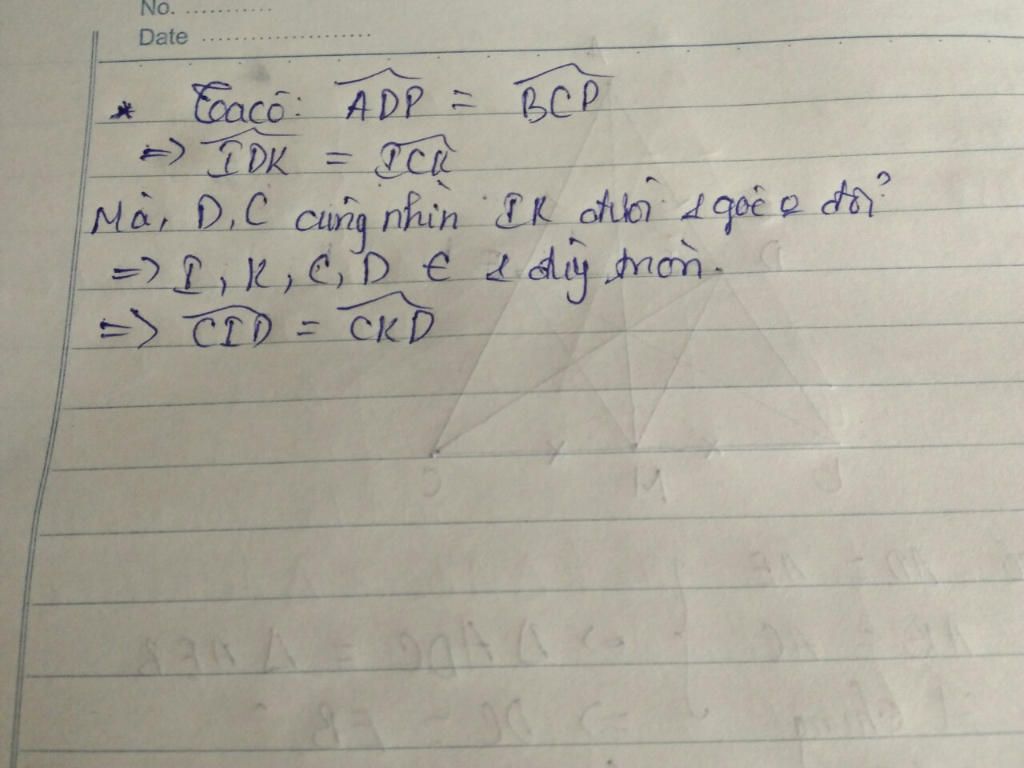 No. ...........
Date .....................
* Ta có: \widehat{ADP} = \widehat{BCP}
=> \widehat{IDK} = \widehat{ICK}
Mà, D, C cùng nhìn IK dưới 1 góc o đổi
=> I, K, C, D ∈ 1 đường tròn.
=> \widehat{CID} = \widehat{CKD}